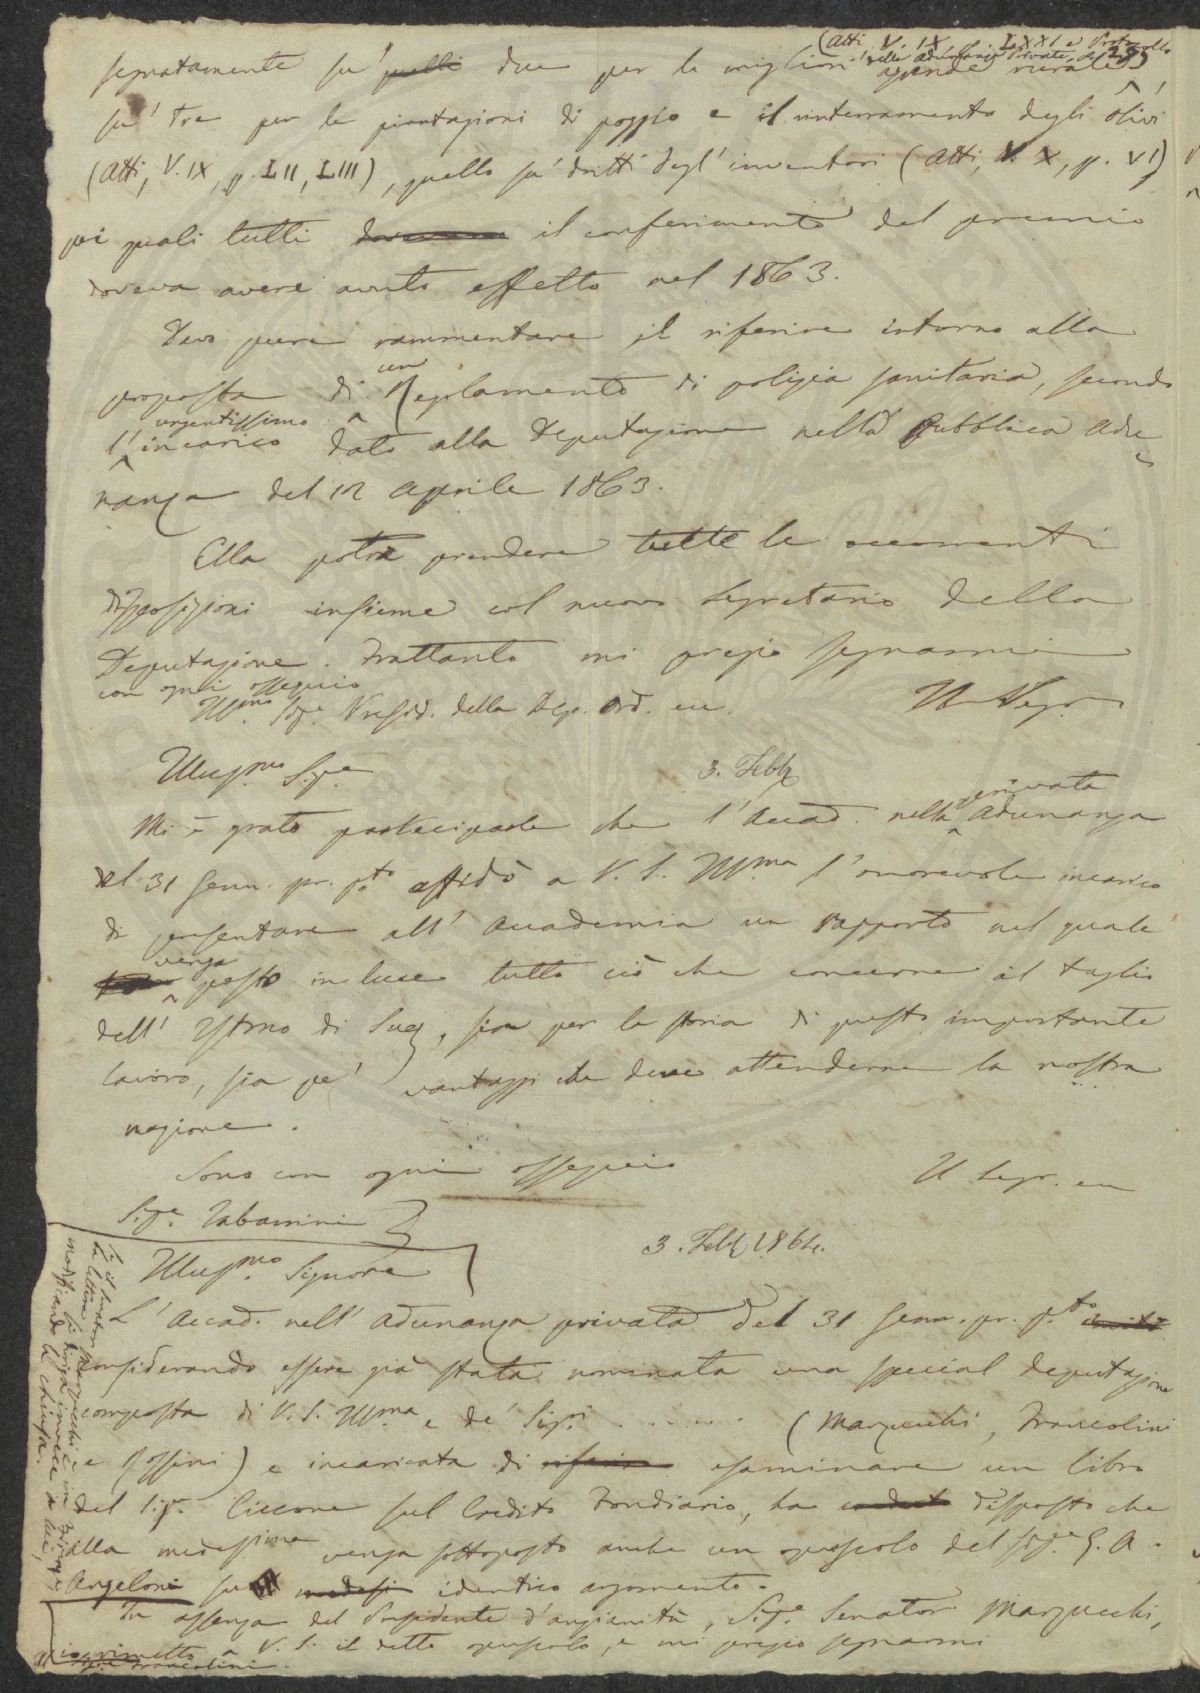 (Atti V. IX LXXI e Protocollo
delle adunanze private, a 295)
segnatamente su' quelli due per le migliori aziende rurali
su' tre per le piantazioni di poggio e il rinterramento degli olivi
(Atti, V. IX, p. LII, LIII), quello su' dritti degl'inventori (Atti, V. X, p. VI)
pei quali tutti il conferimento del premio
doveva avere avuto effetto nel 1863.
Devo pure rammentare il riferire intorno alla
proposta di un Regolamento di polizia sanitaria, secondo
l'urgentissimo incarico dato alla Deputazione nella Pubblica Adu
nanza del 12 Aprile 1863.
Ella potrà prendere tutte le occorrenti
disposizioni insieme col nuovo Segretario della
Deputazione. Frattanto mi pregio segnarmi
con ogni ossequio
Il Segr.
Illmo Sige Presid. della Dep. Ord. ec.
3. Febb
Illusmo Sige
Mi è grato parteciparle che l'Accad. nella privata Adunanza
del 31 Genn. pr. pto affidò a V. S. Illma l'onorevole incarico
di presentare all'Accademia un rapporto nel quale
venga posto in luce tutto ciò che concerne il taglio
dell'Istmo di Suez, sia per la storia di questo importante
lavoro, sia pe' vantaggi che deve attenderne la nostra
nazione.
Sono con ogni ossequio
Il Segr. ec
Sige Tabarrini
3. Febb 1864.
Illusmo Signore
L'Accad. nell'Adunanza privata del 31 Genn. pr. pto
considerando essere già stata nominata una special deputazione
composta di V. S. Illma e de' Sigri ........ (Marzucchi, Francolini
e Rossini) e incaricata di riferire esaminare un libro
del Sigr. Ciccone sul Credito Fondiario, ha disposto che
alla medesima venga sottoposto anche un opuscolo del Sige G. A.
Angeloni su identico argomento.
In assenza del Presidente d'anzianità, Sige Senator Marzucchi,
io rimetto a V. S. il detto opuscolo, e mi pregio segnarmi
Sige Francolini.
Se il Senator Marzucchi è in Firenze
la lettera si diriga invece a lui,
modificando la chiusa.